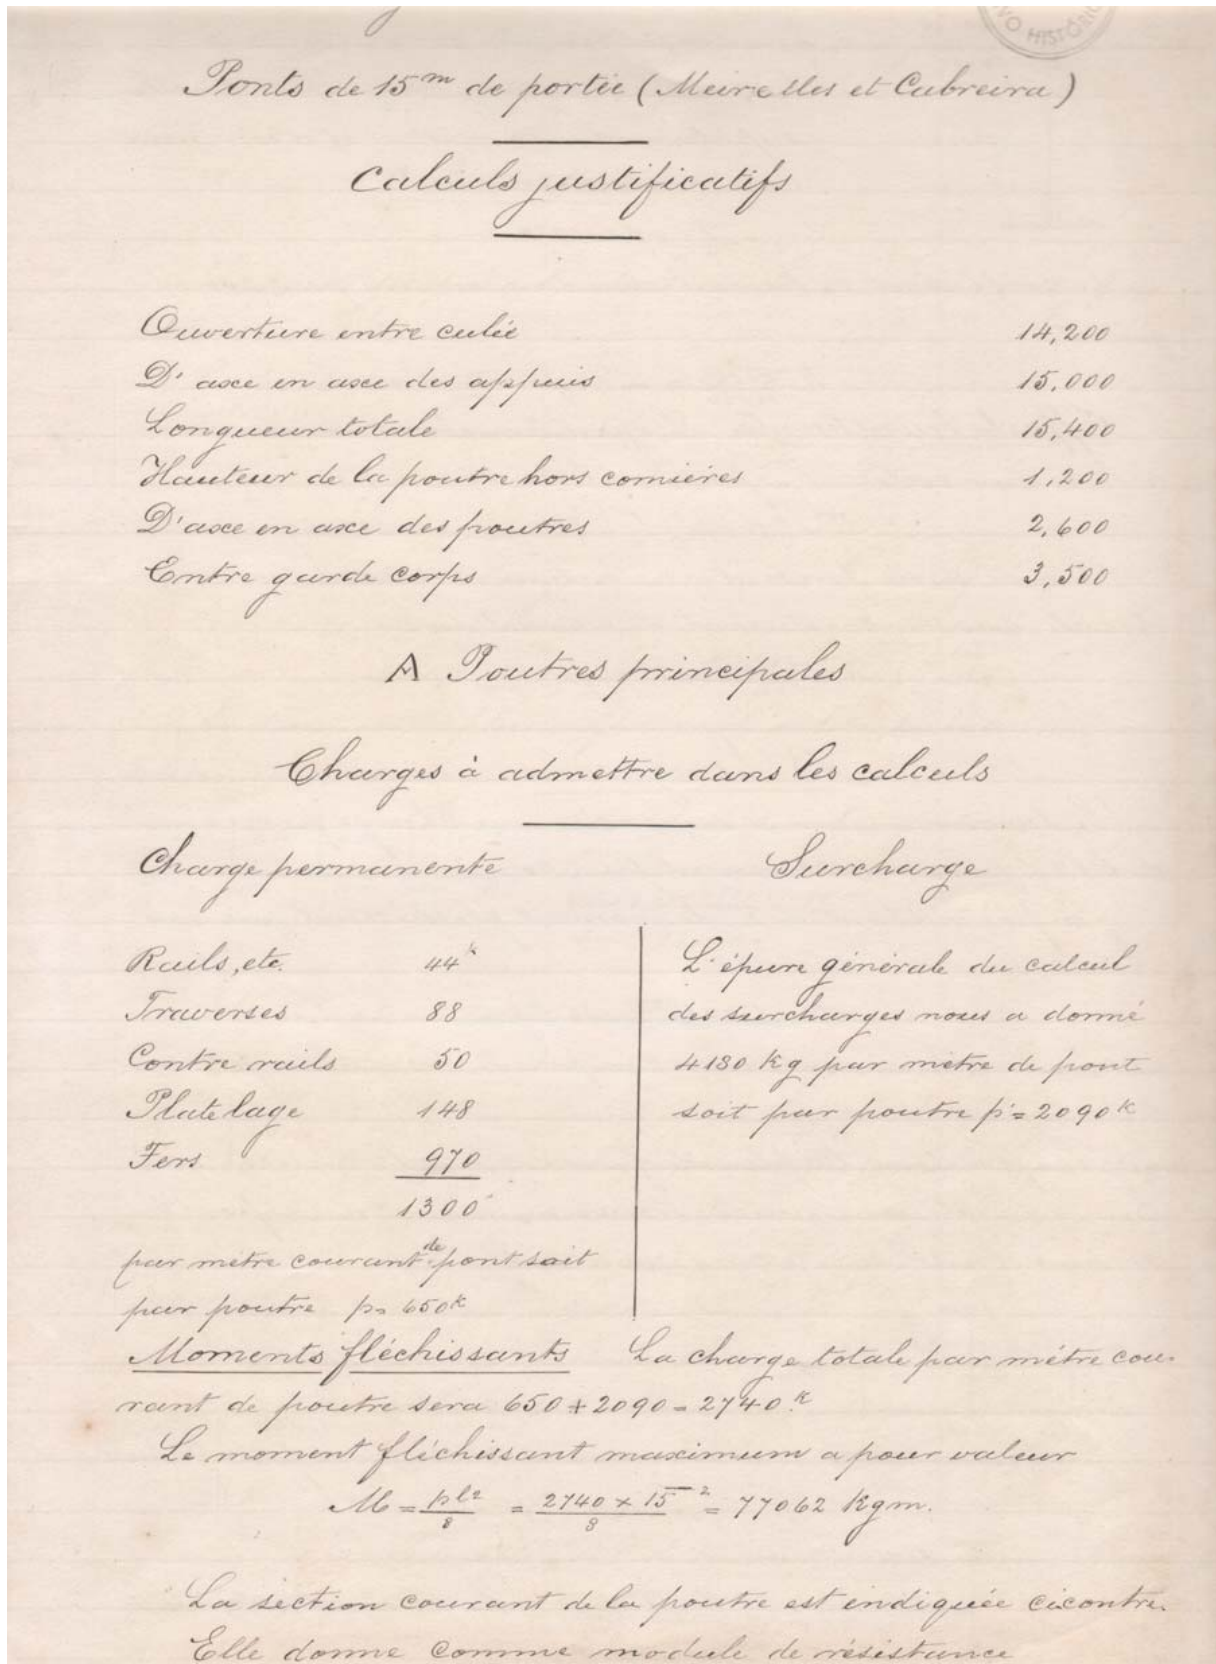 VO HISTÓRIC
Ponts de 15m de portée (Meirelles et Cabreira)
Calculs justificatifs
Ouverture entre culée 14,200
D'axe en axe des appuis 15.000
Longueur totale 15,400
Hauteur de la poutre hors cornières 1,200
D'axe en axe des poutres 2,600
Entre garde corps 3,500
A Poutres principales
Charges à admettre dans les calculs
Charge permanente Surcharge
Rails, etc. 44k
Traverses 88
Contre rails 50
Platelage 148
Fers 970
1300
par mètre courant de pont soit
par poutre p= 650k
L'épure générale du calcul
des surcharges nous a donné
4180 kg par mètre de pont
soit par poutre p'= 2090k
Moments fléchissants La charge totale par mètre cou-
rant de poutre sera 650 + 2090 = 2740k
Le moment fléchissant maximum a pour valeur
M = pl²/8 = 2740 × 15²/8 = 77062 Kgm.
La section courant de la poutre est indiquée cicontre.
Elle donne comme module de résistance